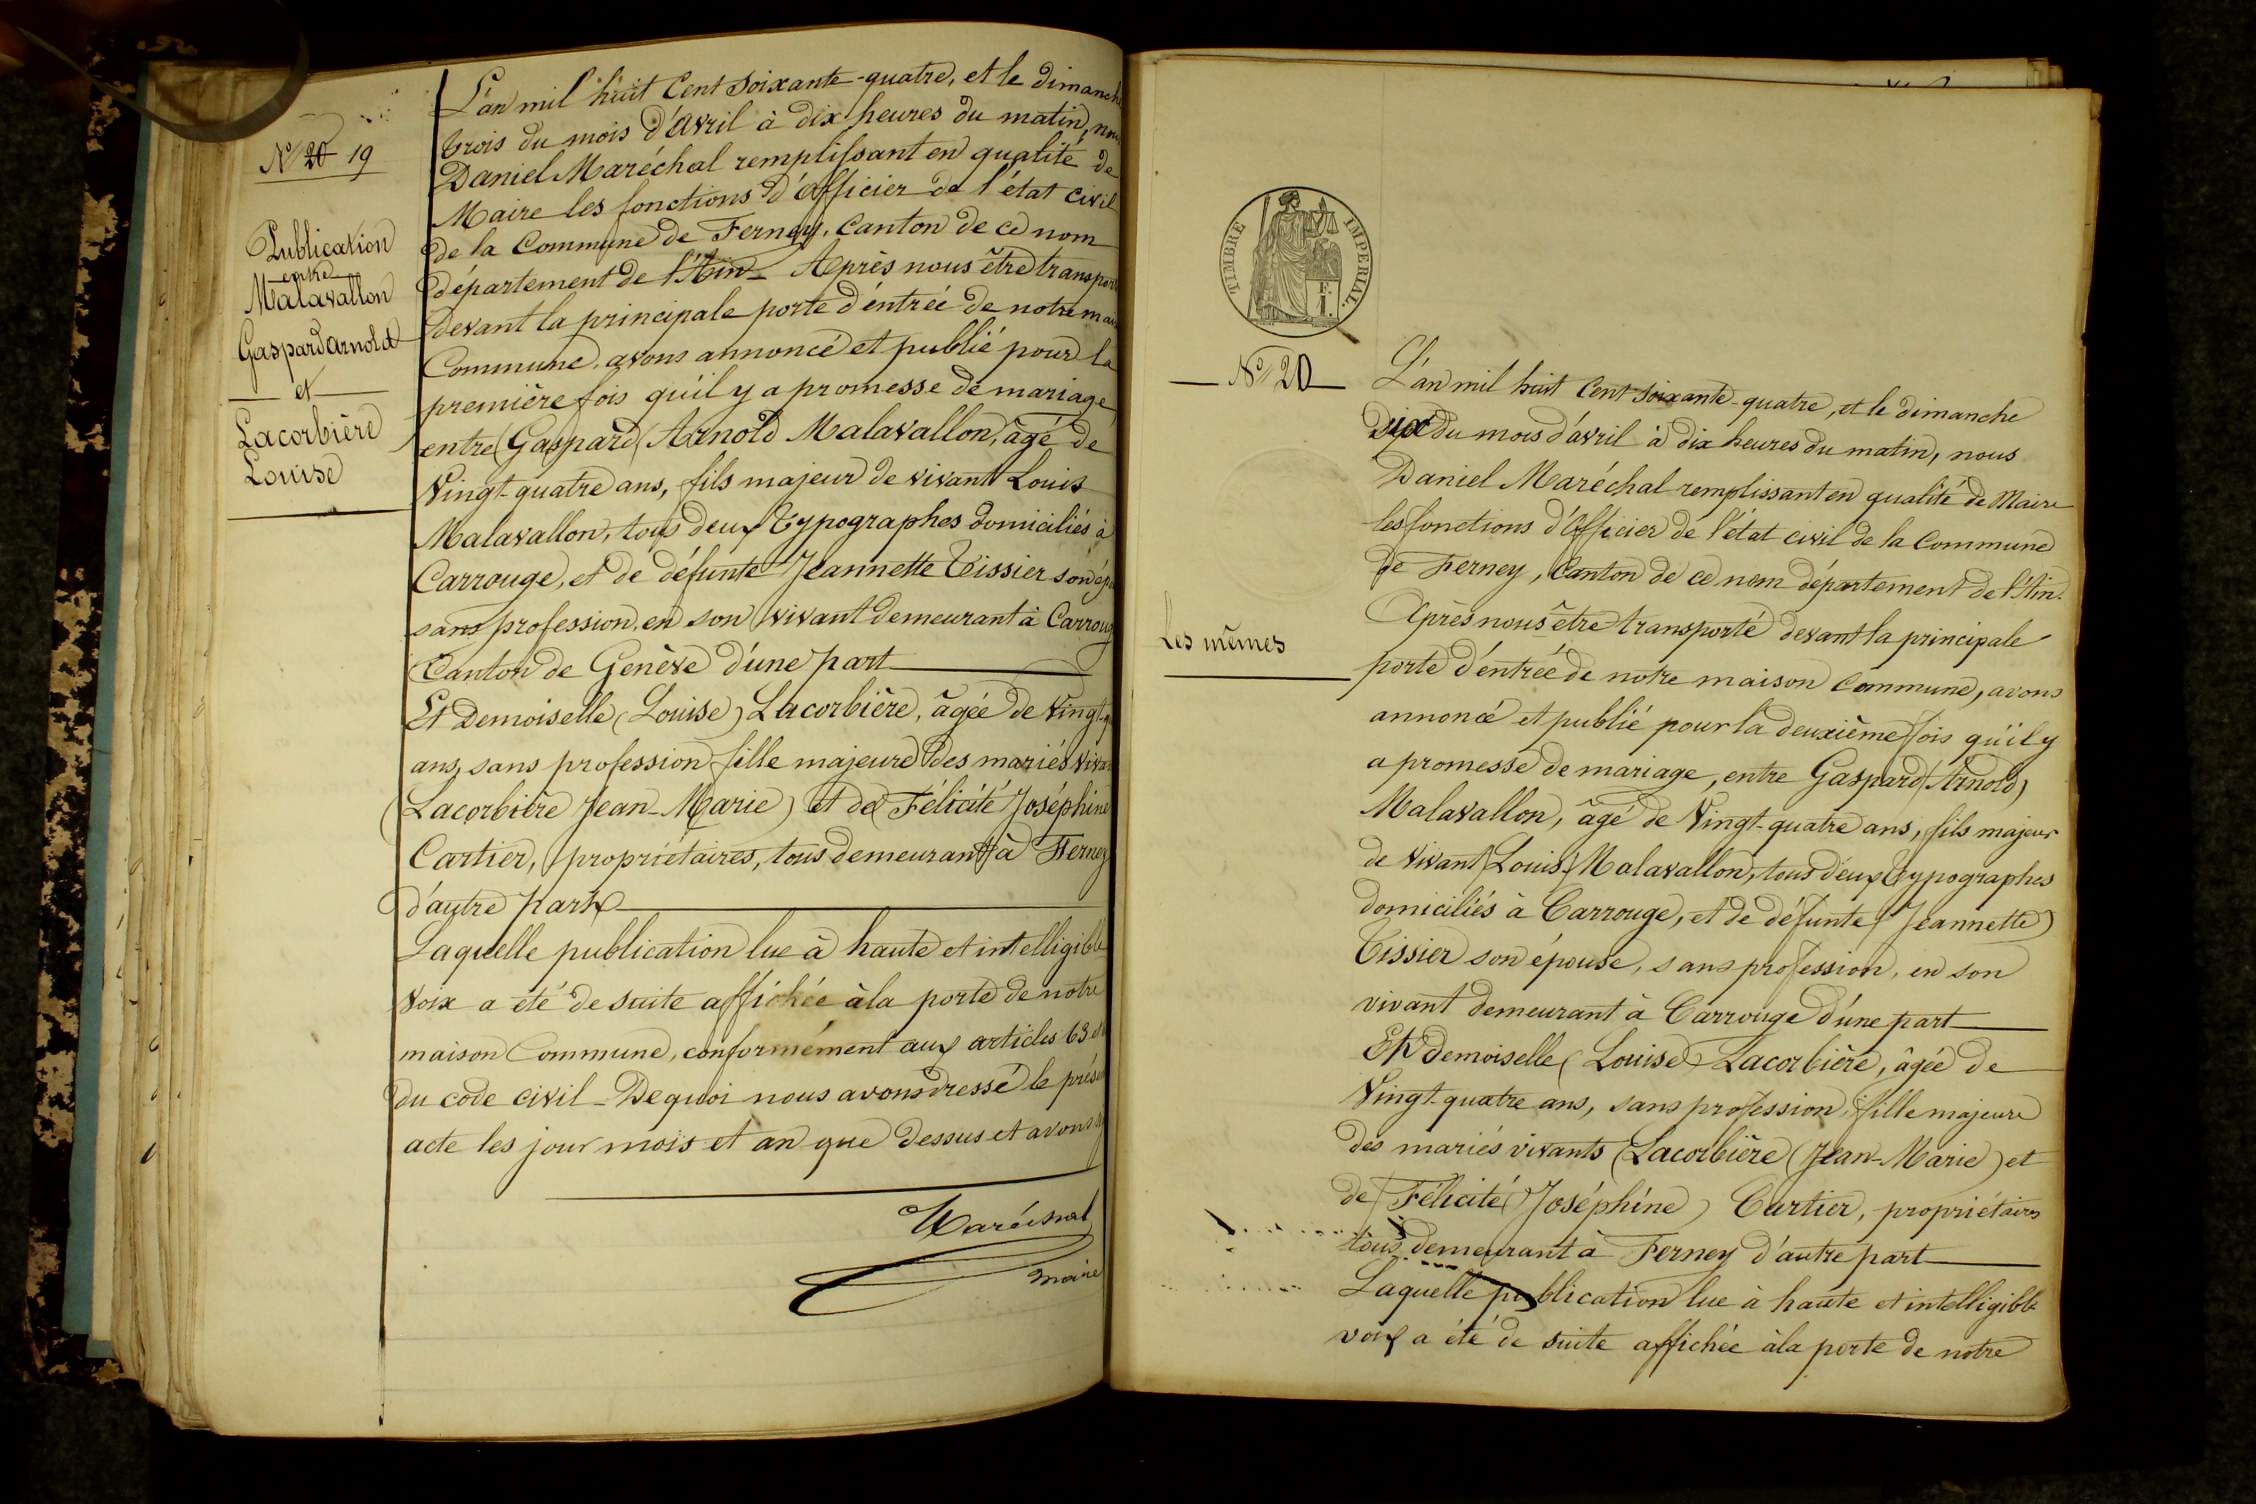 N° 20 19
Publication
entre
Malavallon
Gaspard Arnold
et
Lacorbière
Louise
L'an mil huit Cent Soixante-quatre, et le dimanche
trois du mois d'Avril à dix heures du matin, nous
Daniel Maréchal remplissant en qualité de
Maire les fonctions d'officier de l'état civil
de la Commune de Ferney, Canton de ce nom
département de l'Ain - Après nous être transpor
devant la principale porte d'éntrée de notre mai
Commune, avons annoncé et publié pour la
première fois qu'il y a promesse de mariage
entre (Gaspard (Arnold Malavallon, âgé de
Vingt-quatre ans, fils majeur de vivant Louis
Malavallon, tous deux Typographes domiciliés à
Carrouge, et de défunte Jeannette Tissier son ép
sans profession, en son vivant demeurant à Carroug
Canton de Genève d'une part
Et Demoiselle (Louise) Lacorbière, âgée de Vingt-q
ans, sans profession fille majeure des mariés viva
(Lacorbière Jean-Marie) et de Félicité Joséphine
Cartier, propriétaires, tous demeurant à Ferney
d'autre part
Laquelle publication lue à haute et intelligible
voix a été de suite affichée à la porte de notre
maison Commune, conformément aux articles 63 et
du code civil - De quoi nous avons dressé le prése
acte les jour mois et an que dessus et avons
Maréchal
maire
TIMBRE IMPERIAL.
F. I.
N° 20
Les mêmes
L'an mil huit Cent Soixante-quatre, et le dimanche
Dix du mois d'avril à dix heures du matin, nous
Daniel Maréchal remplissant en qualité de Maire
les fonctions d'Officier de l'état civil de la Commune
de Ferney, Canton de ce nom département de l'Ain.
Après nous être transporté devant la principale
porte d'éntrée de notre maison Commune, avons
annoncé et publié pour la deuxième fois qu'il y
a promesse de mariage, entre Gaspard (Arnold)
Malavallon, âgé de Vingt-quatre ans, fils majeur
de vivant (Louis) Malavallon, tous deux Typographes
domiciliés à Carrouge, et de défunte (Jeannette)
Tissier son épouse, sans profession, en son
vivant demeurant à Carrouge d'une part
Et Demoiselle (Louise) Lacorbière, âgée de
Vingt-quatre ans, sans profession, fille majeure
des mariés vivants (Lacorbière (Jean-Marie) et
de (Félicité Joséphine) Cartier, propriétaires
tous demeurant à Ferney d'autre part
Laquelle publication lue à haute et intelligible
voix a été de suite affichée à la porte de notre